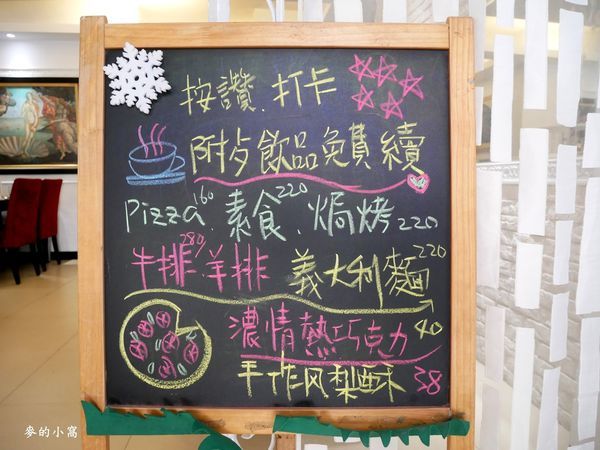 按讚.打卡
附步飲品免費續
Pizza160.素食220.焗烤220
牛排280.羊排 義大利麵220
濃情熱巧克力40
手作风梨酥38
麥的小窩